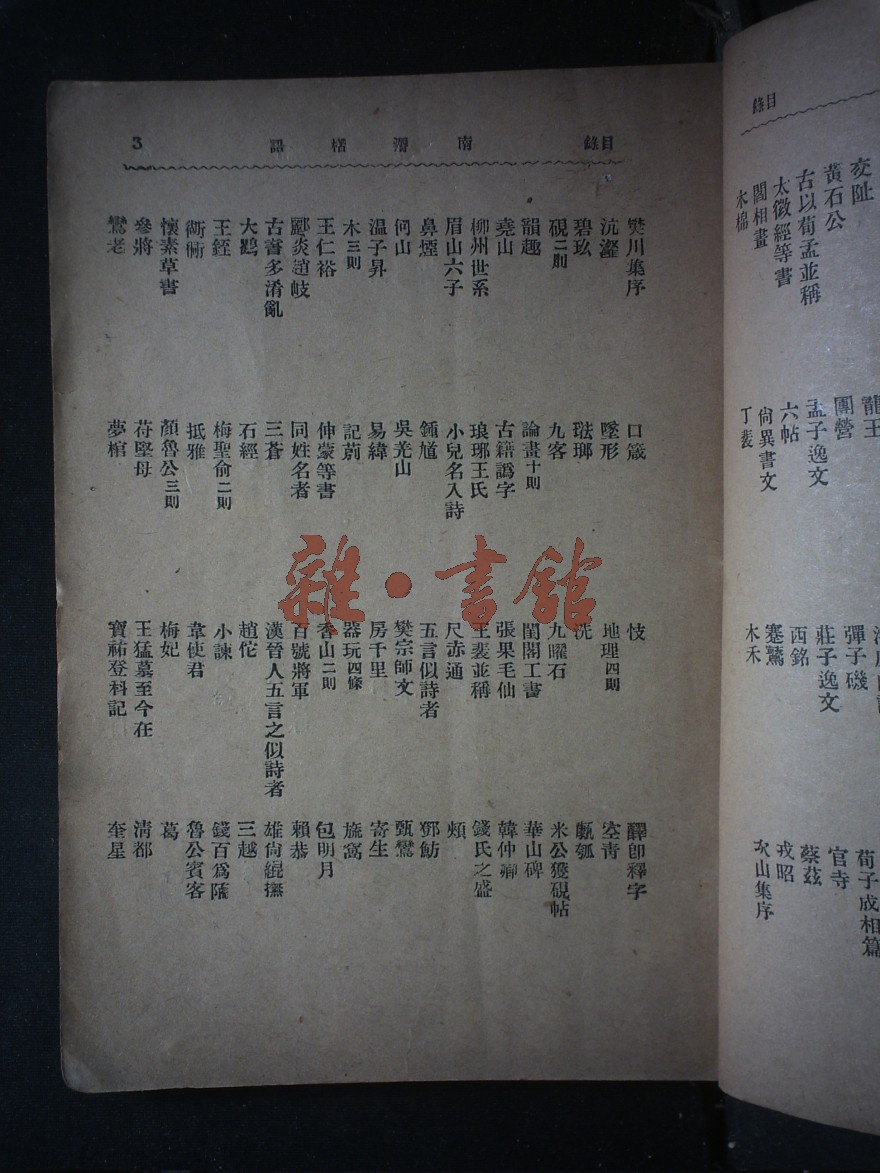 目錄
交阯
黃石公 龍王
古以荀孟並稱 團營 彈子磯 荀子成相篇
太徵經等書 孟子逸文 莊子逸文 官寺
閻相畫 六帖 西銘 蔡茲
木棉 尙異書文 蹇驁 戎昭
丁裴 木禾 次山集序
目錄 南漘楛語 3
樊川集序 口箴 忮 醳卽釋字
沆瀣 墜形 地理四則 空青
碧玖 琺瑯 洗 甗瓠
硯二則 九客 九曜石 米公獲硯帖
韻趣 論畫十則 閨閣工書 華山碑
堯山 古籍譌字 張果毛仙 韓仲卿
柳州世系 琅琊王氏 王裴並稱 錢氏之盛
眉山六子 小兒名入詩 尺赤通 頰
鼻煙 鍾馗 五言似詩者 鄧魴
何山 吳光山 樊宗師文 甄鸞
温子昇 易緯 房千里 寄生
木三則 記葪 器玩四條 旒窩
王仁裕 仲蒙等書 香山二則 包明月
酈炎趙岐 同姓名者 百號將軍 賴恭
古書多淆亂 三蒼 漢晉人五言之似詩者 雄尙緄撫
大鸐 石經 趙佗 三越
王銍 梅聖俞二則 小諫 錢百爲陌
衙衙 抵雅 韋使君 魯公賓客
懷素草書 顏魯公三則 梅妃 葛
參將 苻堅母 王猛墓至今在 清都
鸞老 夢棺 寶祐登科記 奎星
雜·書館